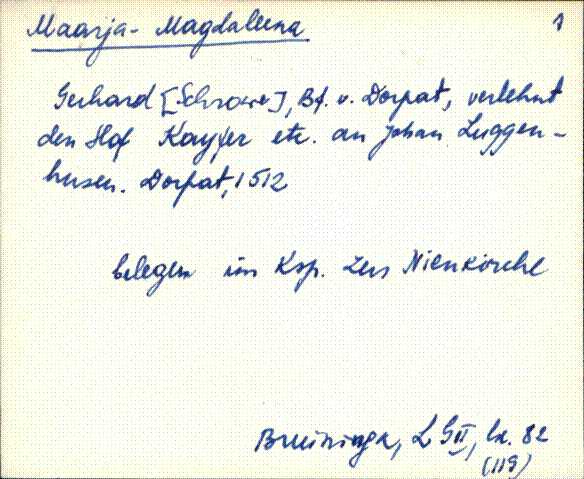 Maarja-Magdaleena 1
Gerhard [Schrowe], Bf. v. Dorpat, verlehnt
den Hof Kayfer etc. an Johan Luggen-
husen. Dorpat, 1512
belegen im Ksp. zen Nienkirche
Bruiningk, LGII, lk. 82
(119)